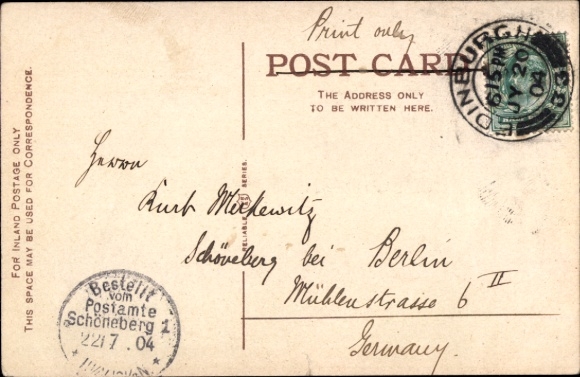 Print only
POST CARD
THE ADDRESS ONLY
TO BE WRITTEN HERE.
EDINBURGH
6.15 PM
JY 20
04
FOR INLAND POSTAGE ONLY
THIS SPACE MAY BE USED FOR CORRESPONDENCE.
RELIABLE SERIES.
Herrn
Kurt Meskewitz
Schöneberg bei Berlin
Mühlenstrasse 6 II
Germany.
Bestellt
vom
Postamte
Schöneberg 1
22/7.04